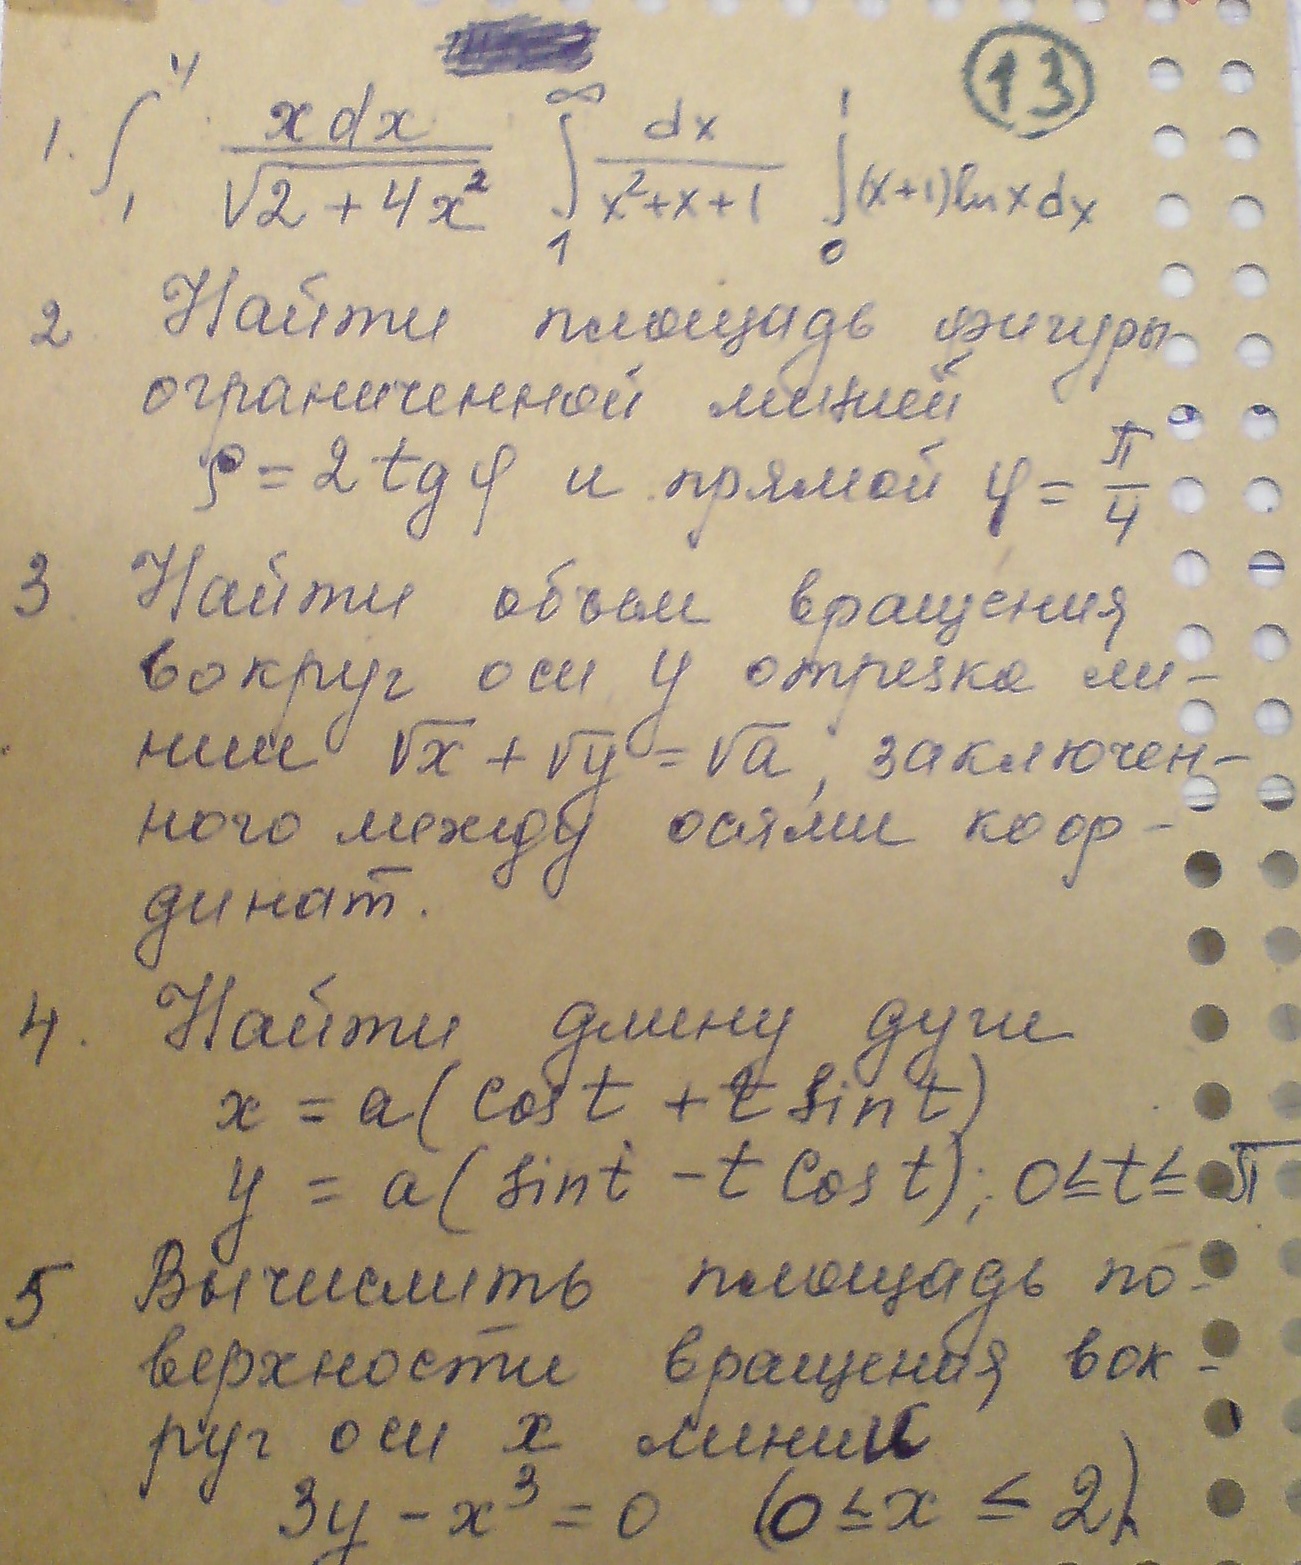 13
1. ∫₁⁴ xdx/√(2+4x²) ∫₁^∞ dx/(x²+x+1) ∫₀¹ (x+1)ln x dx
2 Найти площадь фигуры
ограниченной линией
ρ = 2tgφ и прямой φ = π/4
3 Найти объем вращения
вокруг оси y отрезка ли-
нии √x + √y = √a, заключен-
ного между осями коор-
динат.
4. Найти длину дуги
x = a(cost + t sint)
y = a(sint - t cost); 0≤t≤π
5 Вычислить площадь по-
верхности вращения вок-
руг оси x линии
3y - x³ = 0 (0≤x≤2)